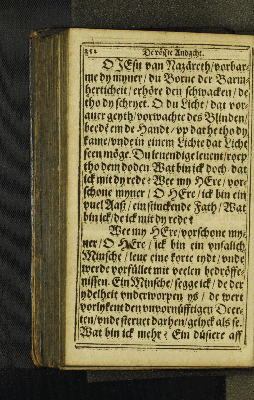 252 De vößte Andacht.
O JEsu van Nazareth/vorbar-
me dy myner/ du Borne der Barm-
herticheit/ erhöre den schwacken/ de
tho dy schryet. O du Licht/ dat vor-
auer geyth/ vorwachte des Blinden/
beede em de Handt/ vp dat he tho dy
kame/vnde in einem Lichte dat Licht
seen möge. Du leuendige leuent/roep
tho dem doden. Wat bin ick doch dat
ick mit dy rede? Wee my HEre/ vor-
schone myner/ O HEre/ ick bin ein
vuel Aaß/ ein stinckende Fath/ Wat
bin ick/ de ick mit dy rede?
Wee my HEre/vorschone my-
ner/ O HEre/ ick bin ein vnsalich
Minsche/ leue eine korte tydt/ vnde
werde vorfüllet mit veelen bedröffe-
nissen. Ein Minsche/ segge ick/ de der
ydelheit vnderworpen ys/ de wert
vorlykent den vnvornüfftigen Deer-
ten/vnde steruet darhen/gelyck als se.
Wat bin ick mehr? Ein düstere aff